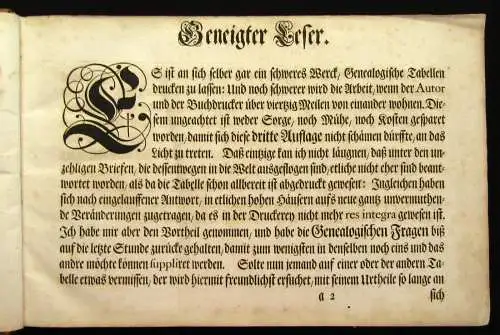 Geneigter Leser.
ES ist an sich selber gar ein schweres Werck, Genealogische Tabellen
drucken zu lassen: Und noch schwerer wird die Arbeit, wenn der Autor
und der Buchdrucker über viertzig Meilen von einander wohnen. Die-
sem ungeachtet ist weder Sorge, noch Mühe, noch Kosten gesparet
worden, damit sich diese dritte Auflage nicht schämen dürffte, an das
Licht zu treten. Daß eintzige kan ich nicht läugnen, daß unter den un-
zehligen Briefen, die dessentwegen in die Welt ausgeflogen sind, etliche nicht eher sind beant-
wortet worden, als da die Tabelle schon allbereit ist abgedruckt gewesen: Ingleichen haben
sich nach eingelauffener Antwort, in etlichen hohen Häusern aufs neue gantz unvermuthen-
de Veränderungen zugetragen, da es in der Druckerey nicht mehr res integra gewesen ist.
Ich habe mir aber den Vortheil genommen, und habe die Genealogischen Fragen biß
auf die letzte Stunde zurücke gehalten, damit zum wenigsten in denselben noch eins und das
andre möchte können suppliret werden. Solte nun jemand auf einer oder der andern Ta-
belle etwas vermissen, der wird hiermit freundlichst ersuchet, mit seinem Urtheile so lange an
a 2 sich